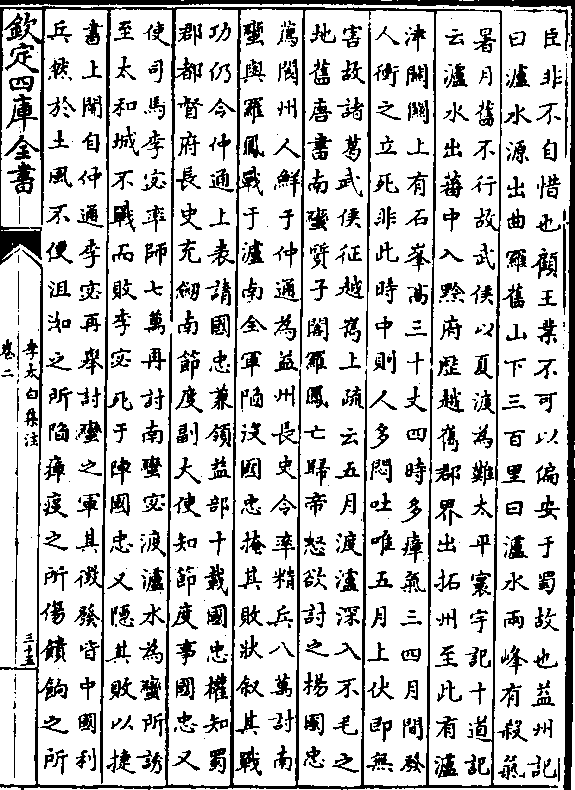 臣非不自惜也顧王業不可以偏安于蜀故也益州記
曰瀘水源出曲羅舊山下三百里曰瀘水兩峰有殺氣
暑月舊不行故武侯以夏渡為難太平寰宇記十道記
云瀘水出蕃中入黔府歷越巂郡界出拓州至此有瀘
津關關上有石峯高三十丈四時多瘴氣三四月間發
人衝之立死非此時中則人多悶吐唯五月上伏即無
害故諸葛武侯征越巂上疏云五月渡瀘深入不毛之
地舊唐書南蠻質子閣羅鳳亡歸帝怒欲討之楊國忠
薦閬州人鮮于仲通為益州長史令率精兵八萬討南
蠻與羅鳳戰于瀘南全軍陷沒國忠掩其敗狀叙其戰
功仍令仲通上表請國忠兼領益部十載國忠權知蜀
郡都督府長史充劒南節度副大使知節度事國忠又
使司馬李宓率師七萬再討南蠻宓渡瀘水為蠻所誘
至太和城不戰而敗李宓死于陣國忠又隱其敗以捷
書上聞自仲通李宓再舉討蠻之軍其徵發皆中國利
兵然於土風不便沮洳之所陷瘴疫之所傷饋餉之所
欽定四庫全書
李太白集注
卷二
三十五